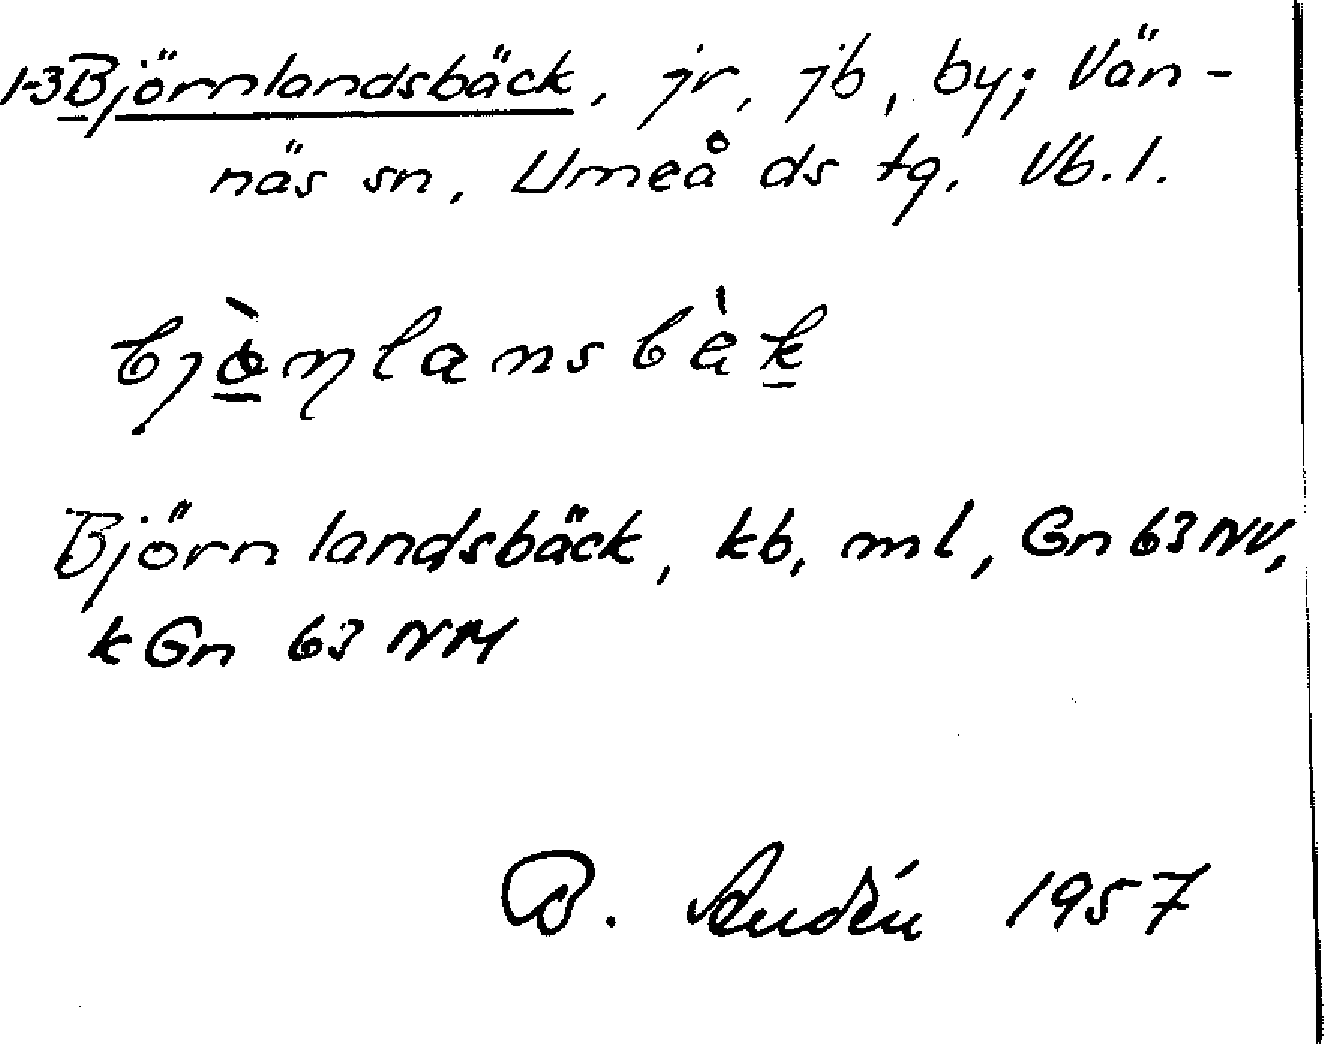 1-3 Björnlandsbäck, jr, jb, by; Vän-
näs sn, Umeå ds tg. Vb. l.
bjò̱ɳlansbàk̲
Björnlandsbäck, kb, ml, Gn 63 NV,
k Gn 63 NM
B. 1957